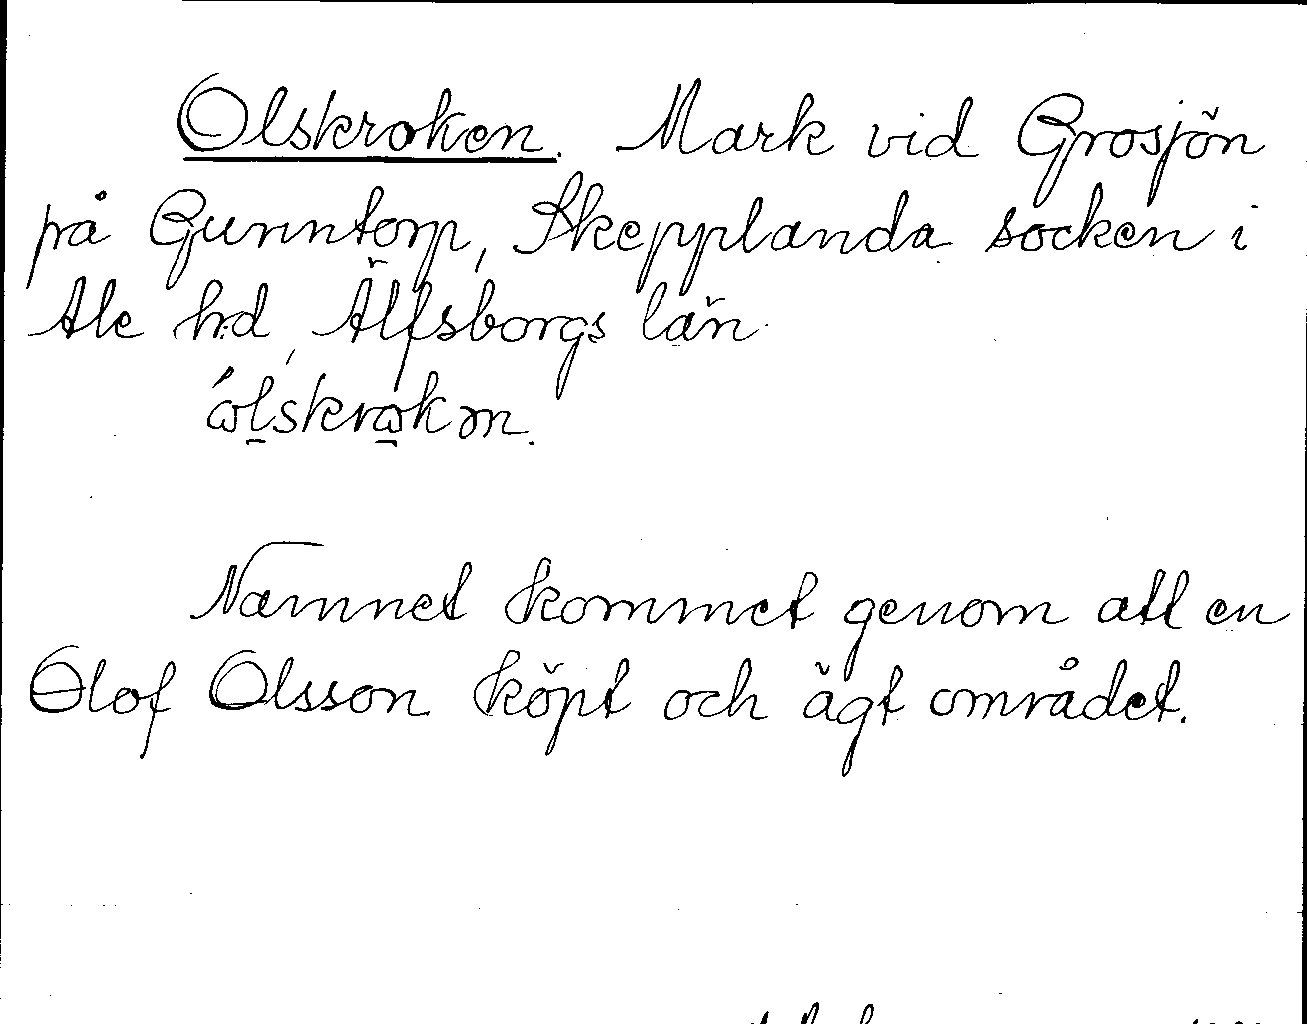 Olskroken. Mark vid Grosjön
på Gunntorp, Skepplanda socken i
Ale hd, Älfsborgs län
Namnet kommet genom att en
Olof Olsson köpt och ägt området.